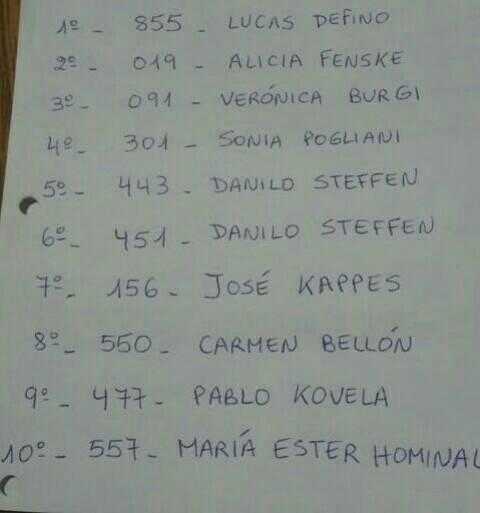 1º - 855 - LUCAS DEFINO
2º - 019 - ALICIA FENSKE
3º - 091 - VERÓNICA BURGI
4º - 301 - SONIA POGLIANI
5º - 443 - DANILO STEFFEN
6º - 451 - DANILO STEFFEN
7º - 156 - JOSÉ KAPPES
8º - 550 - CARMEN BELLÓN
9º - 477 - PABLO KOVELA
10º - 557 - MARIÁ ESTER HOMINAL